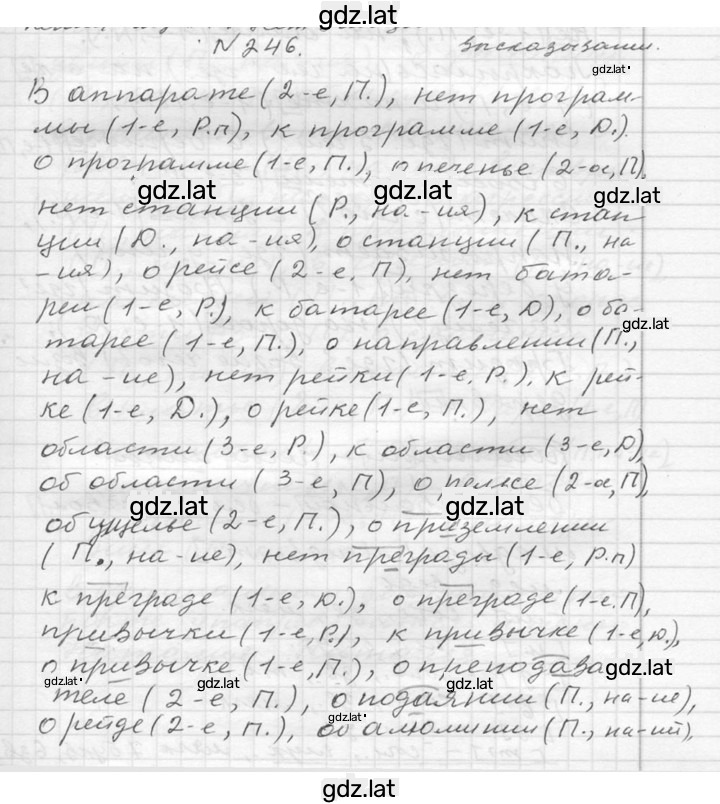 gdz.lat
N 246. высказывании.
gdz.lat
В аппарате (2-е, П.), нет програм-
мы (1-е, Р.п), к программе (1-е, Д.).
о программе (1-е, П.), о печенье (2-а, П).
gdz.lat gdz.lat gdz.lat
нет станции (Р., на -ия), к стан
ции (Д., на -ия), о станции (П., на
-ия), о рейсе (2-е. П), нет бата-
реи (1-е, Р.), к батарее (1-е, Д), о ба-
gdz.lat
тарее (1-е, П.), о направлении (П.,
на -ие), нет рейки (1-е. Р.). к рей-
ке (1-е, Д.), о рейке (1-е, П.), нет
области (3-е, Р.), к области (3-е, Д),
об области (3-е, П), о (2-а, П),
gdz.lat gdz.lat gdz.lat
об ущелье (2-е, П.), о приземлении
(П., на -ие), нет преграды (1-е, Р.п)
к преграде (1-е, Д.), о преграде (1-е. П),
привычки (1-е, Р.), к привычке (1-е, Д.),
о привычке (1-е, П.), о преподава gdz.lat
gdz.lat gdz.lat gdz.lat
теле (2-е, П.), о подаянии (П., на -ие),
gdz.lat
о рейде (2-е, П.), об алюминии (П., на -ий),
gdz.lat